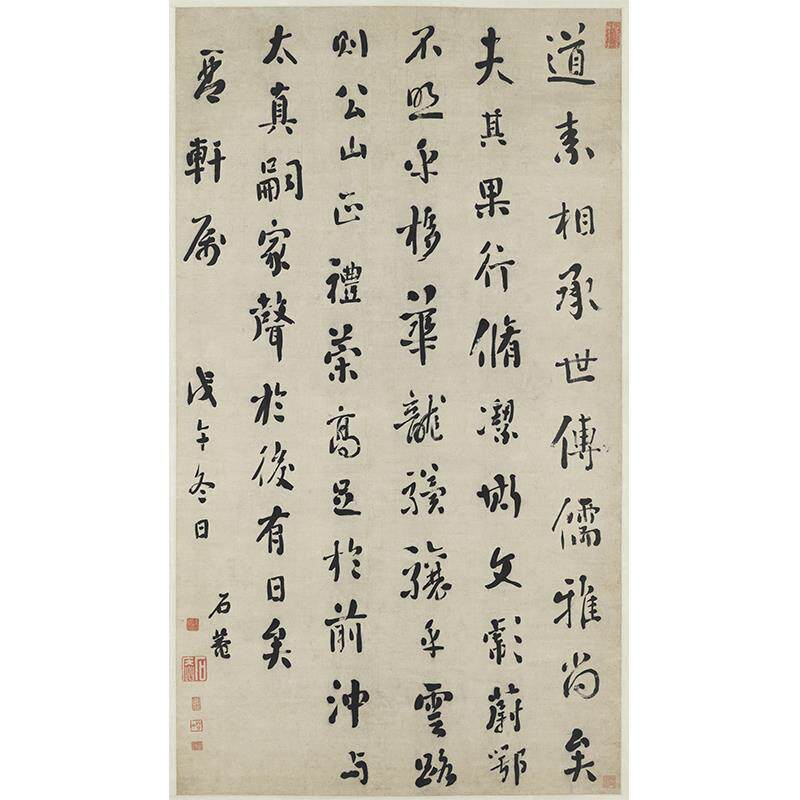 道素相承世傳儒雅尚矣
夫其果行脩潔斯文彪蔚鄂
不照乎栘華龍驥驤乎雲路
則公山正禮策高足於前沖与
太真嗣家聲於後有日矣
軒属
戊午冬日
石菴